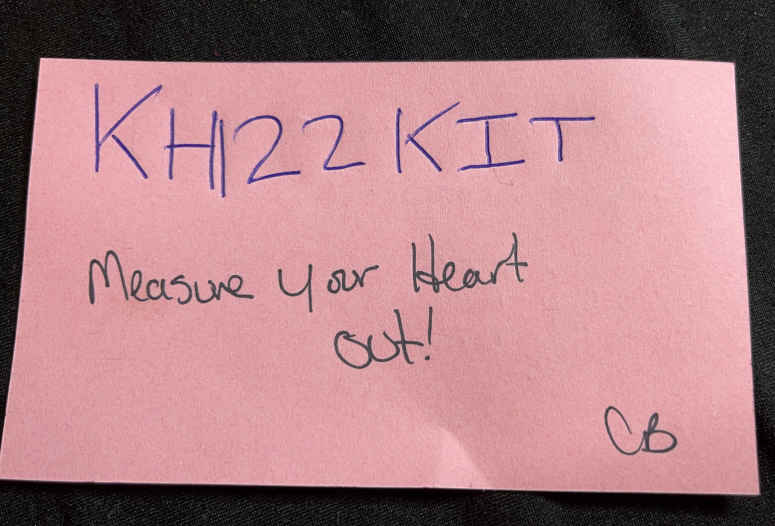 KH122 KIT
Measure your Heart
out!
CB